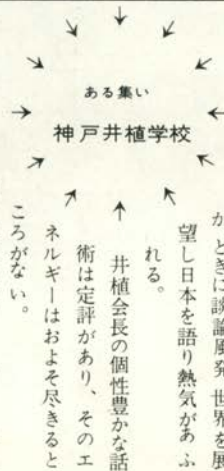 ある集い
神戸井植学校
か、ときに談論風発、世界を展
望し日本を語り熱気があふ
れる。
井植会長の個性豊かな話
術は定評があり、そのエ
ネルギーはおよそ尽きると
ころがない。